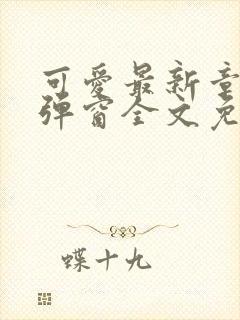 可爱最新章
弹窗全文免
蝶十九